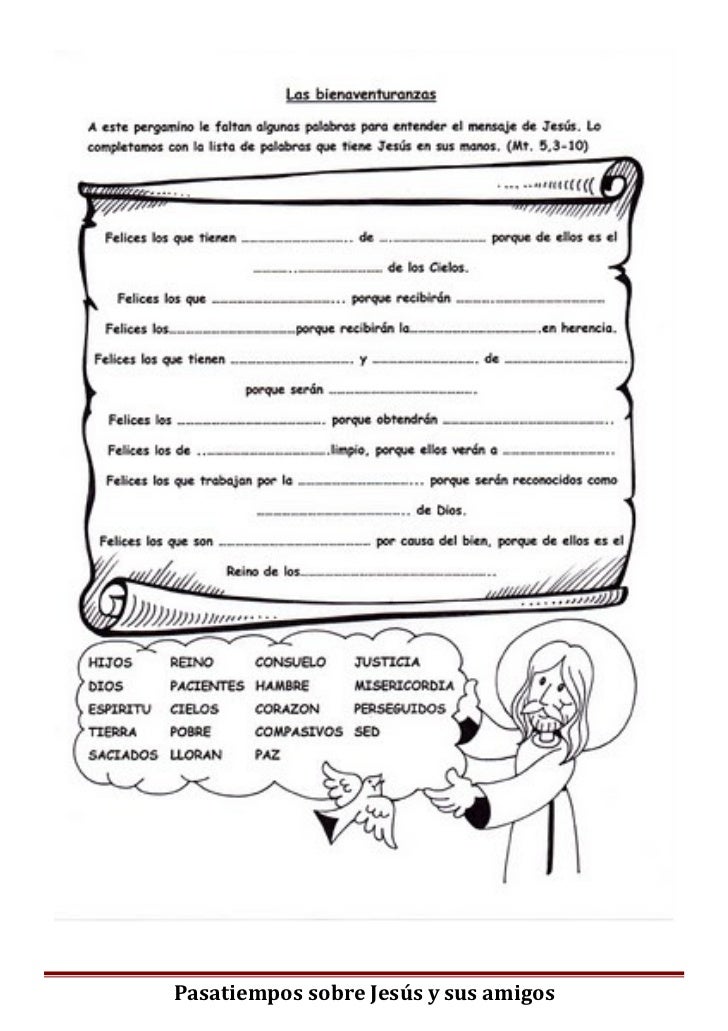 Las bienaventuranzas
A este pergamino le faltan algunas palabras para entender el mensaje de Jesús. Lo
completamos con la lista de palabras que tiene Jesús en sus manos. (Mt. 5,3-10)
Felices los que tienen ................................ de ................................ porque de ellos es el
................................ de los Cielos.
Felices los que ................................ porque recibirán ................................
Felices los................................porque recibirán la................................en herencia.
Felices los que tienen ................................ y ................................ de ................................
porque serán ................................
Felices los ................................ porque obtendrán ................................
Felices los de ................................limpio, porque ellos verán a ................................
Felices los que trabajan por la ................................ porque serán reconocidos como
................................ de Dios.
Felices los que son ................................ por causa del bien, porque de ellos es el
Reino de los................................
HIJOS REINO CONSUELO JUSTICIA
DIOS PACIENTES HAMBRE MISERICORDIA
ESPIRITU CIELOS CORAZON PERSEGUIDOS
TIERRA POBRE COMPASIVOS SED
SACIADOS LLORAN PAZ
Pasatiempos sobre Jesús y sus amigos